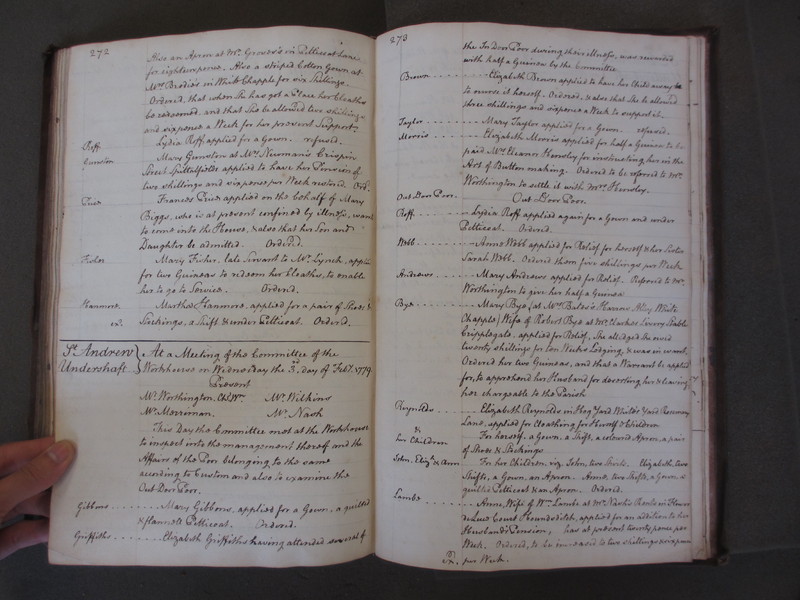 272
Also an Apron at Mr. Groves's in Petticoat Lane
for eighteen pence. Also a striped Cotton Gown at
Mrs. Brodie's in White Chapple for six shillings
Ordered, that when She has got a Place her Cloaths
be redeemed, and that She be allowed two shillings
and sixpence a Week for her present Support.
Roff. Lydia Roff, applied for a Gown. refused.
Gunston Mary Gunston at Mr. Newman's Crispin
Street Spittalfields applied to have her Pension of
two shillings and sixpence per Week restored. Ord.
Frances applied on the behalf of Mary
Biggs, who is at present confined by illness, wants
to come into the House, & also that her Son and
Daughter be admitted. Ordered.
Fisher Mary Fisher, late Servant to Mr. Lynch, applied
for two Guineas to redeem her Cloaths, to enable
her to go to Service. Ordered.
Hanmore Martha Hanmore, applied for a pair of Shoes &
ex. Stockings, a Shift & under Petticoat. Ordered.
St. Andrew At a Meeting of the Committee of the
Undershaft Workhouse on Wednesday the 3d. day of Feby. 1779.
Present
Mr. Worthington, Ch. Wn. Mr. Wilkins
Mr. Merriman. Mr. Nash
This Day the Committee met at the Workhouse
to inspect into the management thereof and the
Affairs of the Poor belonging to the same
according to Custom and also to examine the
Out Door Poor.
Gibbons Mary Gibbons, applied for a Gown, a quilted
& flannel Petticoat. Ordered.
Griffiths Elizabeth Griffiths having attended several of
273
the In Door Poor during their illness, was rewarded
with half a Guinea by the Committee.
Brown Elizabeth Brown applied to have her Child away
to nurse it herself. Ordered, & also that She be allowed
three shillings and sixpence a Week to support it.
Taylor Mary Taylor applied for a Gown. refused.
Morris Elizabeth Morris applied for half a Guinea to be
paid Mrs. Eleanor Hemsley for instructing her in the
Art of Button making. Ordered to be referred to Mr.
Worthington to settle it with Mrs. Hemsley.
Out Door Poor. Out Door Poor.
Roff Lydia Roff applied again for a Gown and under
Petticoat. Ordered.
Webb Anne Webb applied for Relief for herself & her Sister
Sarah Webb. Ordered them five shillings per Week
Andrews Mary Andrews applied for Relief. Referred to Mr.
Worthington to give her half a Guinea
Bye Mary Bye (at Mr. Harrow Alley White
Chapple) Wife of Robert Bye at Mr. Clarkes Livery Stable
Cripplegate. applied for Relief. She alledged She owed
twenty shillings for ten Weeks Lodging, & was in want.
Ordered her two Guineas, and that a Warrant be applied
for, to apprehend her Husband for deserting her & leaving
her chargeable to the Parish
Reynolds Elizabeth Reynolds in Hog Yard White's Yard Rosemary
Lane, applied for Cloathing for herself & Children
&
her Children For herself, a Gown, a Shift, a coloured Apron, a pair
of Shoes & Stockings
John, Eliz. & Ann For her Children, viz. John, two Shirts. Elizabeth, two
Shifts, a Gown, an Apron. Anne, two Shifts, a Gown, a
quilted Petticoat & an Apron. Ordered.
Lambe Anne, Wife of Wm. Lambe at Mr. Nash's Rents in Flower
de Luce Court Houndsditch, applied for an addition to her
Husband's Pension, has at present twenty pence per
Week. Ordered, to be increased to two shillings & sixpence
Ex. per Week.